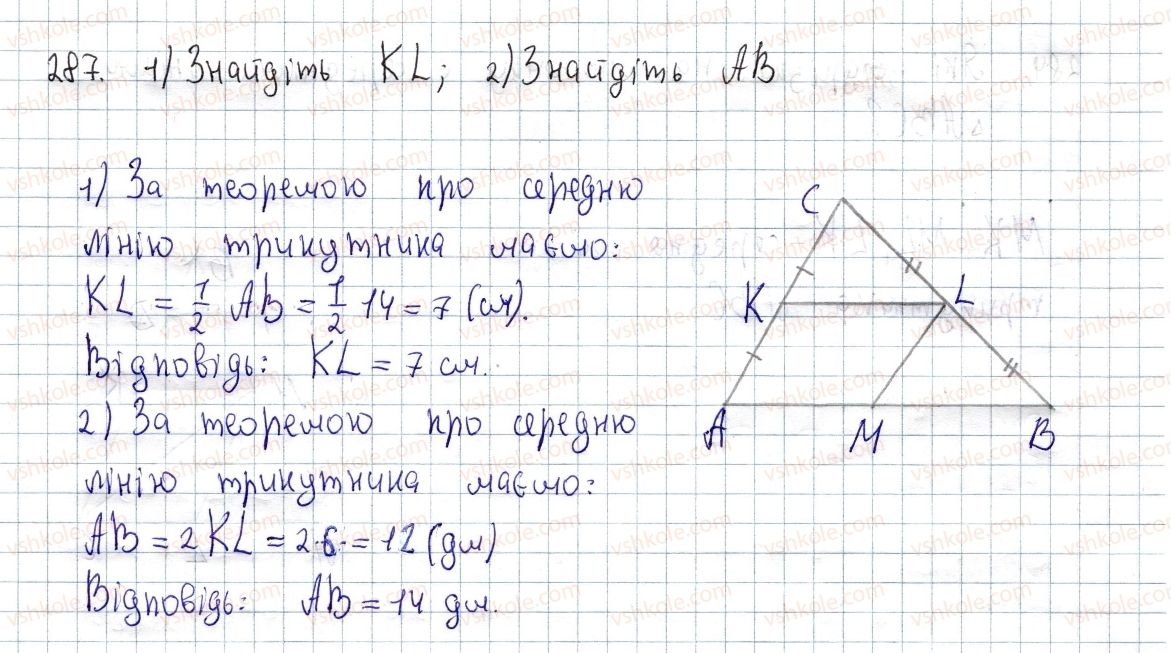 287. 1) Знайдіть KL; 2) Знайдіть AB
1) За теоремою про середню
лінію трикутника маємо:
KL = 1/2 AB = 1/2 14 = 7 (см).
Відповідь: KL = 7 см.
2) За теоремою про середню
лінію трикутника маємо:
AB = 2 KL = 2·6· = 12 (дм)
Відповідь: AB = 14 дм.
C
K
L
A
M
B
vshkole.com